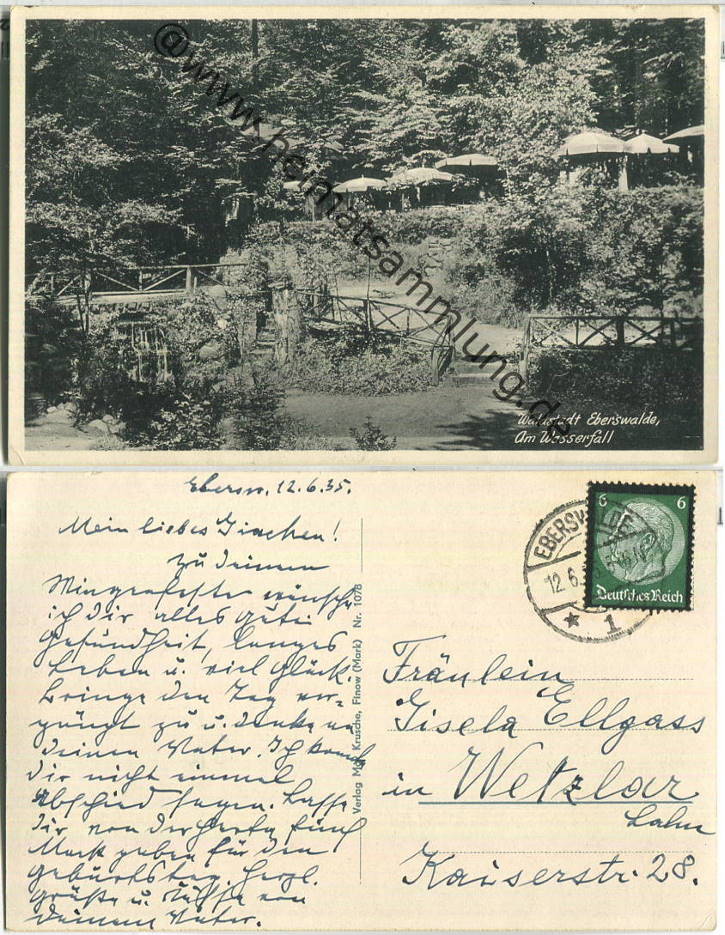 @www.heimatsammlung.de
Waldstadt Eberswalde,
Am Wasserfall
Ebersw. 12.6.35.
Mein liebes Gischen!
zu deinem
wünsche
ich dir alles gute
Gesundheit, langes
Leben u. viel Glück.
Bringe den Tag ver-
gnügt zu u. denke an
deinen Vater. Ich konnte
dir nicht einmal
Abschied sagen. Lasse
dir von der fünf
Mark geben für den
Geburtstag. Herzl.
Grüße u. Küsse von
deinem Vater.
Verlag Max Krusche, Finow (Mark) Nr. 1078
EBERSWALDE
12.6.
* 1
6 6
Deutsches Reich
Fräulein
Gisela Ellgass
in Wetzlar
Lahn
Kaiserstr. 28.